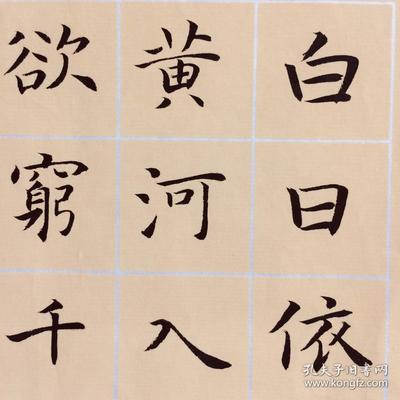 白日依
黄河入
欲窮千
孔夫子旧书网
www.kongfz.com